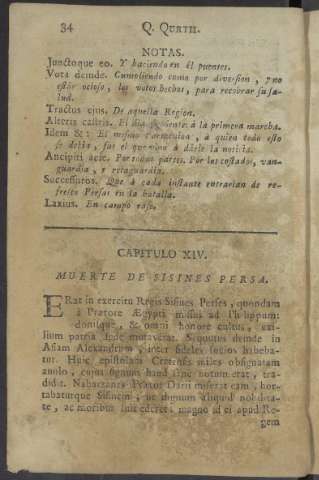 34 Q. QURTII.
NOTAS.
Junctoque eo. Y haciendo en él puentes.
Vota deinde. Cumpliendo como por diversion, y no
estár ocioso, los votos hechos, para recobrar su sa-
lud.
Tractus ejus. De aquella Region.
Alteris castris. El dia siguiente à la primera marcha.
Idem &: El mismo Carmentua, à quien todo esto
se debia, fue el que vino à dàrle la noticia.
Ancipiti acie. Por todas partes. Por los costados, van-
guardia, y retaguardia.
Successuros. Que à cada instante entrarian de re-
fresco Persas en la batalla.
Laxius. En campo raso.
CAPITULO XIV.
MUERTE DE SISINES PERSA.
ERat in exercitu Regis Sisines Perses, quondam
à Prætore Ægypti missus ad Philippum:
donisque, & omni honore cultus, exi-
lium patria sede mutaverat. Sequutus deinde in
Asiam Alexandrum, inter fideles socios habeba-
tur. Huic epistolam Cretensis miles obsignatam
anulo, cujus signum haud sane notum erat, tra-
didit. Nabarzanes Prætor Darii miserat eam, hor-
tabaturque Sisinem, ut dignum aliquid nobilita-
te, ac moribus suis ederet: magno id ei apud Re-
gem